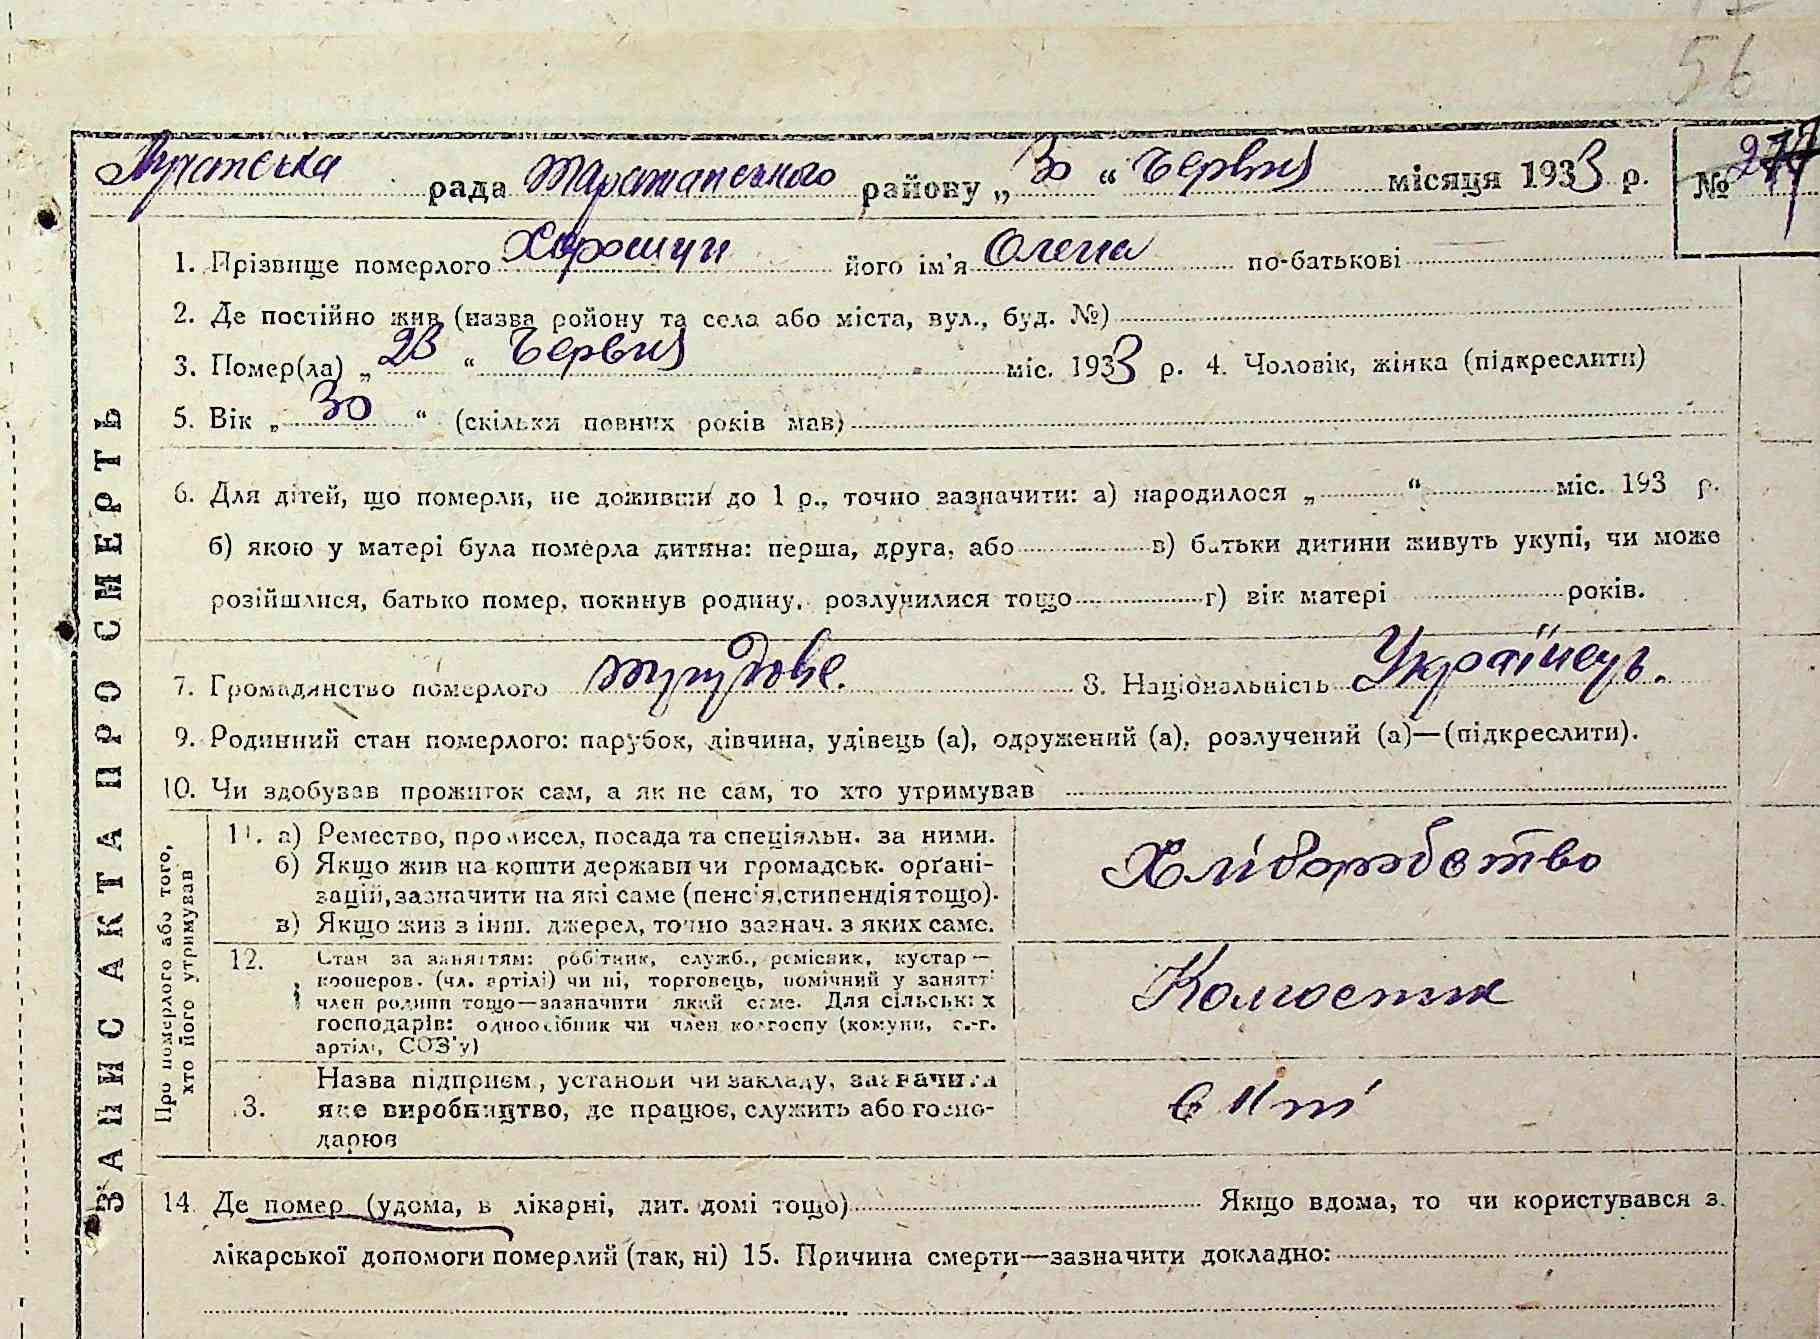 56
Лучанська рада Таращанського району „ 30 “ Червня місяця 1933 р. № 277
1. Прізвище померлого Хорошун його ім'я Олена по-батькові
2. Де постійно жив (назва ройону та села або міста, вул., буд. №)
3. Помер(ла) „ 23 “ Червня міс. 1933 р. 4. Чоловік, жінка (підкреслити)
5. Вік „ 30 “ (скільки повних років мав)
6. Для дітей, що померли, не доживши до 1 р., точно зазначити: а) народилося „ “ міс. 193 р.
б) якою у матері була померла дитина: перша, друга, або в) батьки дитини живуть укупі, чи може
розійшлися, батько помер, покинув родину, розлучилися тощо г) вік матері років.
7. Громадянство померлого трудове. 8. Національність Українець.
9. Родинний стан померлого: парубок, дівчина, удівець (а), одружений (а), розлучений (а)—(підкреслити).
10. Чи здобував прожиток сам, а як не сам, то хто утримував
ЗАПИС АКТА ПРО СМЕРТЬ
Про померлого або того,
хто його утримував
11. а) Ремество, промисел, посада та спеціяльн. за ними.
б) Якщо жив на кошти держави чи громадськ. орґані-
зацій, зазначити на які саме (пенсія, стипендія тощо).
в) Якщо жив з інш. джерел, точно зазнач. з яких саме.
Хліборобство
12. Стан за заняттям: робітник, служб., ремісник, кустар—
кооперов. (чл. артілі) чи ні, торговець, помічний у занятті
член родини тощо—зазначити який саме. Для сільських
господарів: одноосібник чи член колгоспу (комуни, с.-г.
артілі, СОЗ'у)
Колгоспник
13. Назва підприєм., установи чи закладу, зазначити
яке виробництво, де працює, служить або госпо-
дарює
14. Де помер (удома, в лікарні, дит. домі тощо) Якщо вдома, то чи користувався з
лікарської допомоги померлий (так, ні) 15. Причина смерти—зазначити докладно: